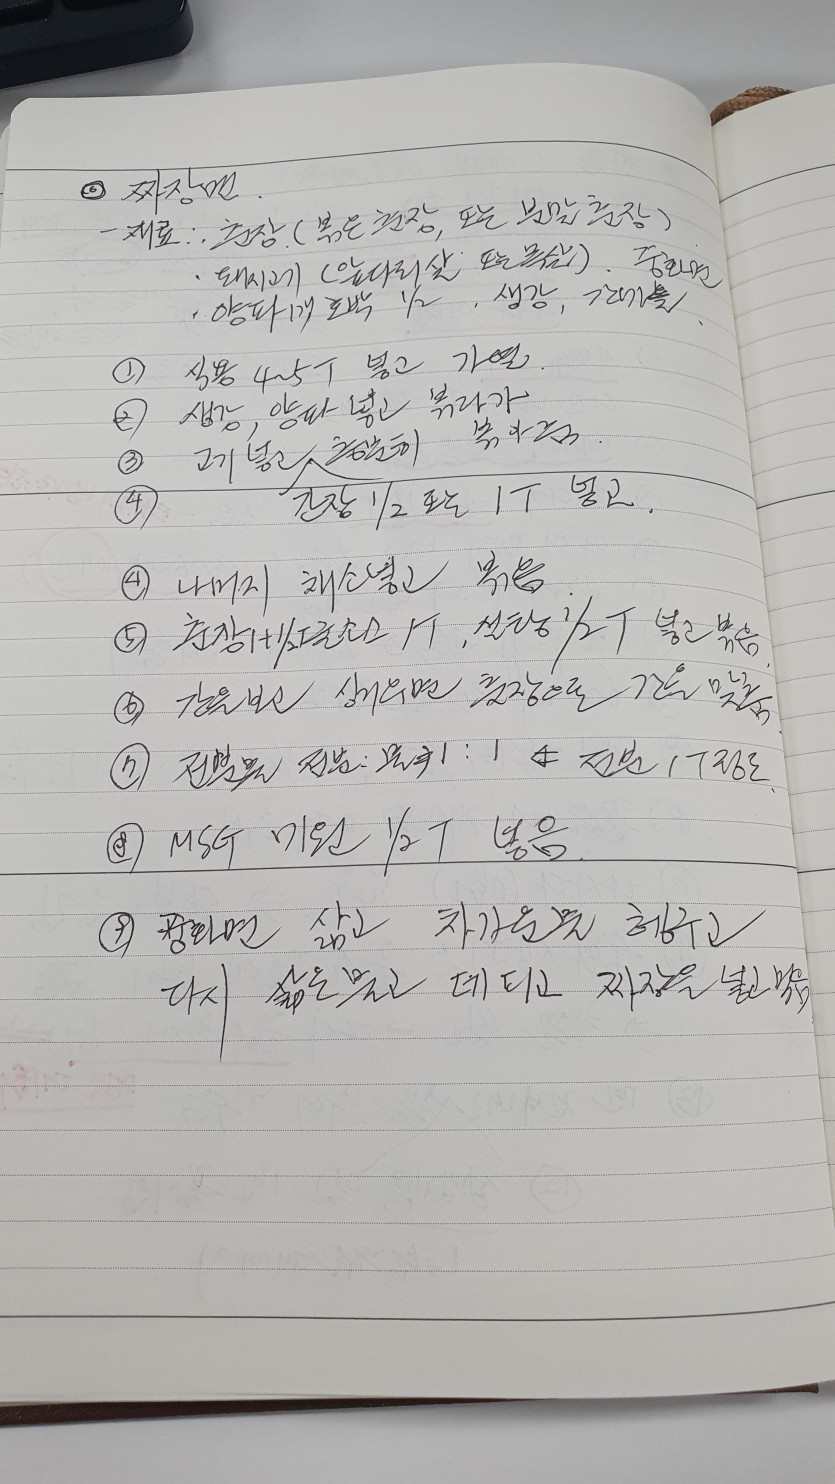 ◎ 짜장면.
- 재료: · 춘장 (볶은 춘장, 또는 분말 춘장)
· 돼지고기 (앞다리살 또는 목심). 중화면
· 양파 1개 호박 1/2, 생강, 건더기를.
① 식용 4~5T 넣고 가열.
② 생강, 양파 넣고 볶다가
③ 고기 넣고 충분히 볶아줌.
④ 간장 1/2 또는 1T 넣고.
④ 나머지 채소넣고 볶음.
⑤ 춘장1+1/2T 굴소스 1T, 설탕 1/2T 넣고 볶음.
⑥ 간을보고 싱거우면 춘장으로 간을 맞춤.
⑦ 전분물 전분:물 1:1 ← 전분 1T정도.
⑧ MSG 미원 1/2T 넣음.
⑨ 중화면 삶고 차가운물 헹구고
다시 삶은물 데티고 짜장을 넣고